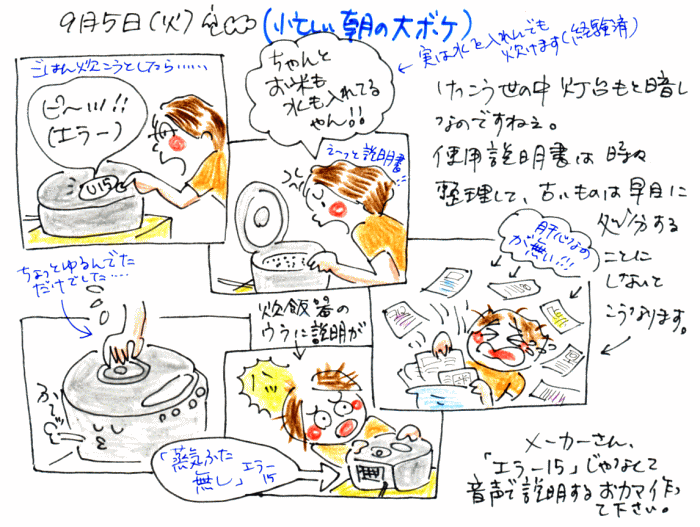 9月5日(火)
(忙しい朝の大ボケ)
実は水を入れんでも
炊けます(経験済)
ごはん炊こうとしたら……
ピ〜ッ!!
(エラー)
U15
ちゃんと
お米も
水も入れてる
やん!!
え〜っと説明書…
けっこう世の中 灯台もと暗し
なのですねぇ。
使用説明書は時々
整理して、古いものは早目に
処分する
ことに
しないと
こうなります。
肝心なの
が無い!!!
ちょっとゆるんでた
だけでした……
炊飯器の
ウラに説明が
「蒸気ふた
無し」エラー
15
メーカーさん、
「エラー15」じゃなくて
音声で説明するおカマ作っ
て下さい。